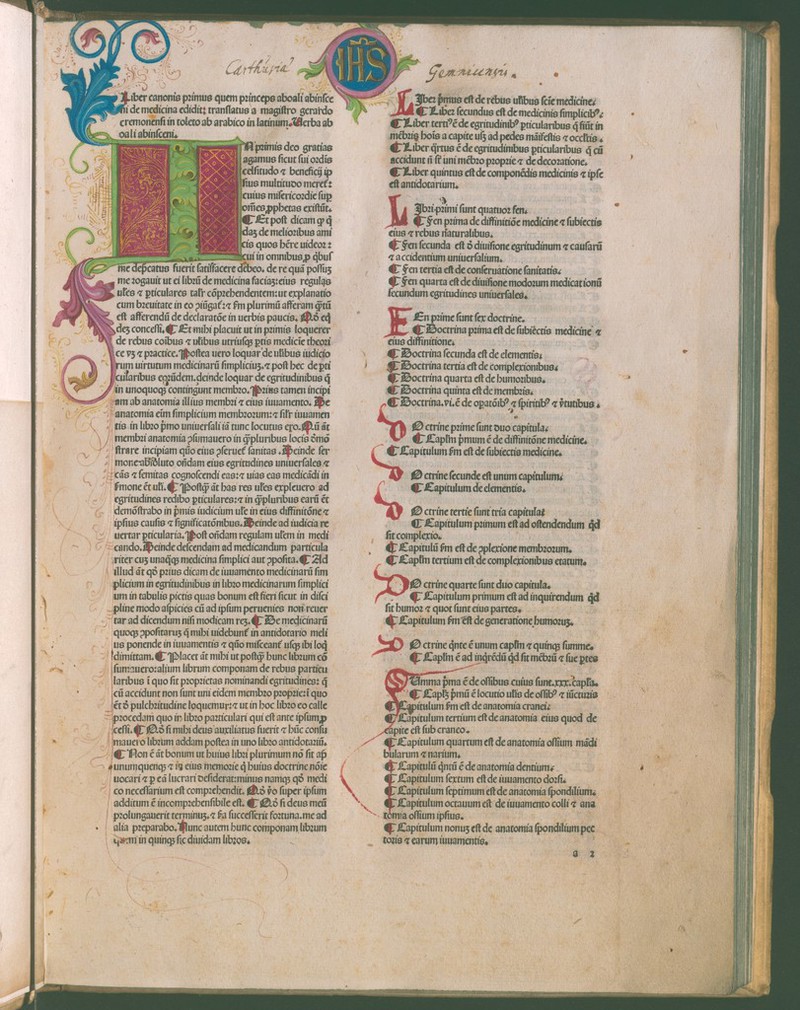 Carthusiae Gemnicensis.
IHS
Liber canonis primus quem princeps aboali abinsce
ni de medicina edidit: translatus a magistro gerardo
cremonensi in toleto ab arabico in latinum. Verba ab
oali abinsceni.
IN primis deo gratias
agamus sicut sui ordinis
celsitudo ⁊ beneficij ip
sius multitudo meret᷑:
cuius misericordie sup̲
om̄es ꝓphetas existūt.
¶ Et post dicam ꝙ q̄
daꝫ de melioribus ami
cis quos hr̄e uideoꝛ:
cui in omnibus ꝓ qͥbus
me dep̄catus fuerit satisfacere debeo. de re qua possuꝫ
me rogauit ut ei librū de medicina faciaꝫ: eius regulas
ul̄es ⁊ ꝑticulares tal'r cōprehendentem: ut explanatio
cum breuitate in eo
est afferendū de declaratōe in uerbis paucis.
deꝫ concessi. ¶ Et mihi placuit ut in primis loquerer
de rebus cōibus ⁊ ul̄ibus utriusqꝫ ꝑtis medicīe theori
ce ꝫ ⁊ practice. Postea uero loquar de ul̄ibus iudicijo
rum uirtutum medicinarū simpliciuꝫ. ⁊ post hec de ꝑti
cularibus eoꝛūdem. deinde loquar de egritudinibus q̄
in unoquoqꝫ contingunt membro. Prius tamen incipi
am ab anatomia illius membri ⁊ eius iuuamento. De
anatomia eīm simplicium membroꝛum: ⁊ sil'r iuuamen
tis in libro p̄mo uniuersali iā tunc locutus ero. Cū āt
membri anatomia ꝯsumauero in q̄ꝫpluribus locis
strare incipiam quō eius ꝯseruet᷑ sanitas. Deinde ser
mone absoluto on̄dam eius egritudines uniuersales ⁊
cās ⁊ semitas cognoscendi eas: ⁊ uias eas medicādi in
s̄mone ēt ul̄i. ¶ Postqꝫ āt has res ul̄es expleuero ad
egritudines redibo ꝑticulares: ⁊ in q̄ꝫpluribus earū ēt
demōstrabo in p̄mis iudicium ul̄e in eius diffinitōne ⁊
ipsius causis ⁊ significatōnibus. Deinde ad iudicia re
uertar ꝑticularia. Post on̄dam regulam ul̄em in medi
cando. Deinde descendam ad medicandum particula
riter cū unaqꝫ medicina simplici aut ꝯposita. ¶ Ad
illud āt qd̄ prius dicam de iuuamento medicinarū sim
plicium in egritudinibus in libro medicinarum simplici
um in tabulis pictis quas bonum est fieri sicut in disci
pline modo aspicies cū ad ipsum perueneis noti reuer
tar ad dicendum nisi modicam reꝫ. ¶ De medicinarū
quoqꝫ ꝯpositarꝫ q̄ mihi uidebunt᷑ in antidotario meli
us ponende in iuuamentis ⁊ quō misceant᷑ usqꝫ ibi loq̄
dimittam. ¶ Placet āt mihi ut postqꝫ hunc librum cō
summauero: alium librum componam de rebus particu
laribus ī quo sit proprietas nominandi egritudines: q̄
cū accidunt non sunt uni eidem membro proprie: ī quo
ēt ō pulchritudine loquemur: ⁊ ut in hoc libro eo calle
procedam quo in libro particulari qui est ante ipsum
cessi. ¶ si mihi deus auxiliatus fuerit ⁊ hūc consu
mauero librum addam postea in uno libro antidotariū.
¶ Non ē āt bonum ut huius libri plurimum nō sit ap̄
unumquenqꝫ ⁊ in eius memorie q̄ huius doctrine nōie
uocari ⁊ ꝑ eā lucrari desiderat: minus namqꝫ qd̄ medi
co necessarium est comprehendit. ṽo super ipsum
additum ē incomprehensibile est. ¶ si deus meū
prolungauerit terminuꝫ. ⁊ successerit fortuna. me ad
alia preparabo. Nunc autem hunc componam librum
quem in quinqꝫ sic diuidam libros.
Liber p̄mus est de rebus ul̄ibus scīe medicine.
¶ Liber secundus est de medicinis simplicibꝰ.
¶ Liber tertiꝰ ē de egritudinibꝰ ꝑticularibus q̄ fiūt in
mēbris hoīs a capite usqꝫ ad pedes māifestis ⁊ occltis.
¶ Liber q̄rtus ē de egritudinibus ꝑticularibus q̄ cū
accidunt nō st̄ uni mēbro proprie ⁊ de decoratione.
¶ Liber quintus est de componēdis medicinis ⁊ ipse
est antidotarium.
Libri primi sunt quatuor fen.
¶ Fen prima de diffinitiōe medicine ⁊ subiectis
eius ⁊ rebus naturalibus.
¶ Fen secunda est ō diuisione egritudinum ⁊ causarū
⁊ accidentium uniuersalium.
¶ Fen tertia est de conseruatione sanitatis.
¶ Fen quarta est de diuisione modorum medicationū
secundum egritudines uniuersales.
FEn prime sunt sex doctrine.
¶ Doctrina prima est de subiectis medicine ⁊
eius diffinitione.
¶ Doctrina secunda est de elementis.
¶ Doctrina tertia est de complexionibus.
¶ Doctrina quarta est de humoribus.
¶ Doctrina quinta est de membris.
¶ Doctrina .vi. ē de opatōibꝰ ⁊ spiritibꝰ ⁊ v̄tutibus.
DOctrine prime sunt duo capitula.
¶ Caplm̄ p̄mum ē de diffinitōne medicine.
¶ Capitulum sm̄ est de subiectis medicine.
DOctrine secunde est unum capitulum.
¶ Capitulum de elementis.
DOctrine tertie sunt tria capitula.
¶ Capitulum primum est ad ostendendum qd̄
sit complexio.
¶ Capitulū sm̄ est de ꝯplexione membroꝛum.
¶ Caplm̄ tertium est de complexionibus etatum.
DOctrine quarte sunt duo capitula.
¶ Capitulum primum est ad inquirendum qd̄
sit humor ⁊ quot sunt eius partes.
¶ Capitulum sm̄ est de generatione humoruꝫ.
DOctrine qn̄te ē unum caplm̄ ⁊ quinqꝫ summe.
¶ Caplm̄ ē ad inqrēdū qd̄ sit mēbrū ⁊ sue ꝑtes
SUmma p̄ma ē de ossibus cuius sunt .xxx. capl̄a.
¶ Caplꝫ p̄mū ē locutio ul̄is de ossibꝰ ⁊ iūcturis
¶ Capitulum sm̄ est de anatomia cranei.
¶ Capitulum tertium est de anatomia eius quod de
capite est sub craneo.
¶ Capitulum quartum est de anatomia ossium mādi
bularum ⁊ narium.
¶ Capitulū qn̄tū ē de anatomia dentium.
¶ Capitulum sextum est de iuuamento dorsi.
¶ Capitulum septimum est de anatomia spondilium.
¶ Capitulum octauum est de iuuamento colli ⁊ ana
tomia ossium ipsius.
¶ Capitulum nonuꝫ est de anatomia spondilium pec
toris ⁊ earum iuuamentis.
a 2